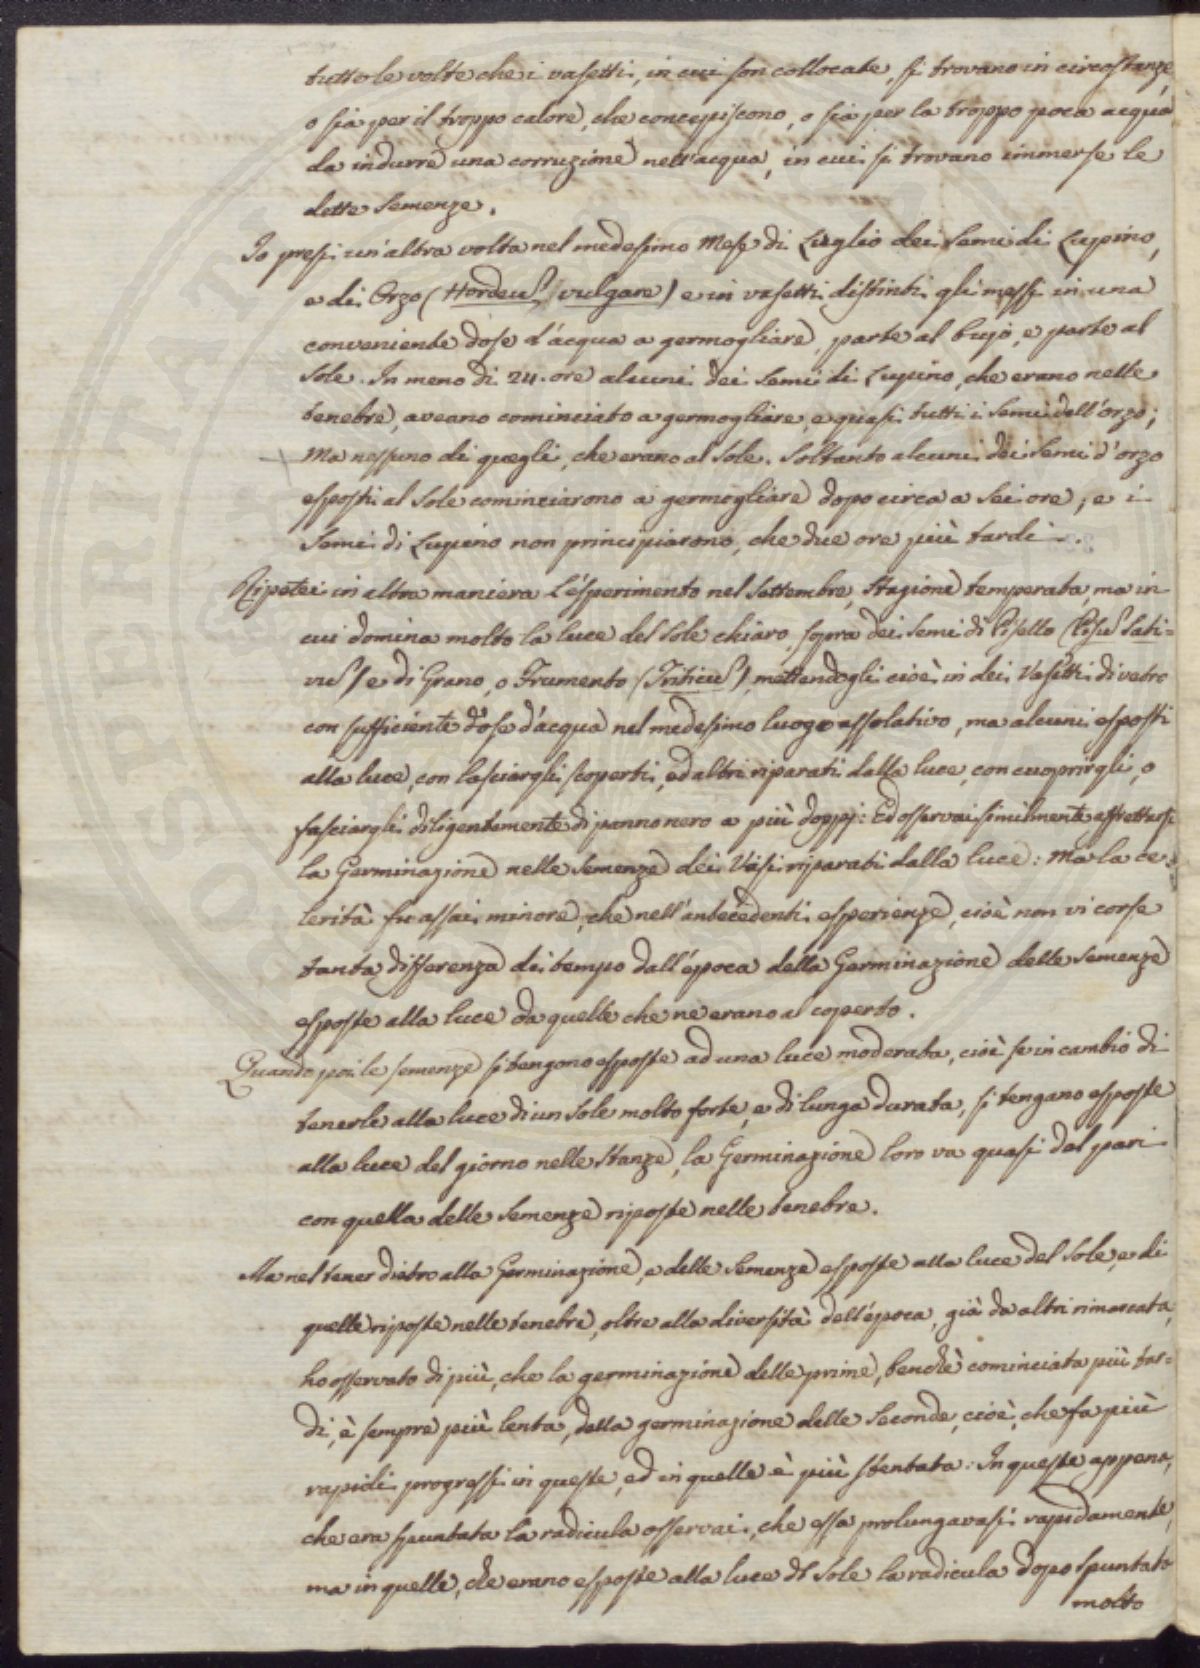 tutte le volte che i vasetti, in cui son collocate, si trovano in circostanze,
o sia per il troppo calore, che concepiscono, o sia per la troppo poca acqua
da indurre una corruzione nell'acqua, in cui si trovano immerse le
dette Semenze.
Io presi un'altra volta nel medesimo Mese di Luglio dei Semi di Lupino,
e di Orzo (Hordeu͂ vulgare) e in vasetti distinti gli messi in una
conveniente dose d'acqua a germogliare, parte al bujo, e parte al
Sole. In meno di 24. ore alcuni dei Semi di Lupino, che erano nelle
tenebre, aveano cominciato a germogliare, e quasi tutti i Semi dell'orzo;
Ma nessuno di quegli, che erano al Sole. Soltanto alcuni dei Semi d'orzo
esposti al Sole cominciarono a germogliare dopo circa a Sei ore, e i
Semi di Lupino non principiarono, che due ore più tardi.
Ripetei in altra maniera l'esperimento nel Settembre, Stagione temperata, ma in
cui domina molto la luce del Sole chiaro, sopra dei Semi di Pisello (Pisu͂ Sati=
vu͂) e di Grano, o Frumento (Triticu͂), mettendogli cioè in dei Vasetti di vetro
con sufficiente dose d'acqua nel medesimo luogo assolativo, ma alcuni esposti
alla luce, con lasciargli scoperti, ed altri riparati dalla luce, con cuoprirgli, o
fasciargli diligentemente di panno nero a più doppj: Ed osservai similmente affrettarsi
la Germinazione nelle Semenze dei Vasi riparati dalla luce: Ma la ce=
lerità fu assai minore, che nell'antecedenti esperienze, cioè non vi corse
tanta differenza di tempo dall'epoca della Germinazione delle Semenze
esposte alla luce da quelle che ne erano al coperto.
Quando poi le semenze si tengono esposte ad una luce moderata, cioè se in cambio di
tenerle alla luce di un Sole molto forte, e di lunga durata, si tengano esposte
alla luce del giorno nelle Stanze, la Germinazione loro va quasi del pari
con quella delle Semenze riposte nelle tenebre.
Ma nel tener dietro alla Germinazione, e delle Semenze esposte alla luce del Sole, e di
quelle riposte nelle tenebre, oltre alla diversità dell'epoca, già da altri rimarcata,
ho osservato di più, che la germinazione delle prime, benchè cominciata più tar=
di, è sempre più lenta, della germinazione delle Seconde, cioè, che fa più
rapidi progressi in queste, ed in quelle è più stentata: In queste appena,
che era spuntata la radicula osservai, che essa prolungavasi rapidamente,
ma in quelle, che erano esposte alla luce del Sole la radicula dopo spuntata
molto